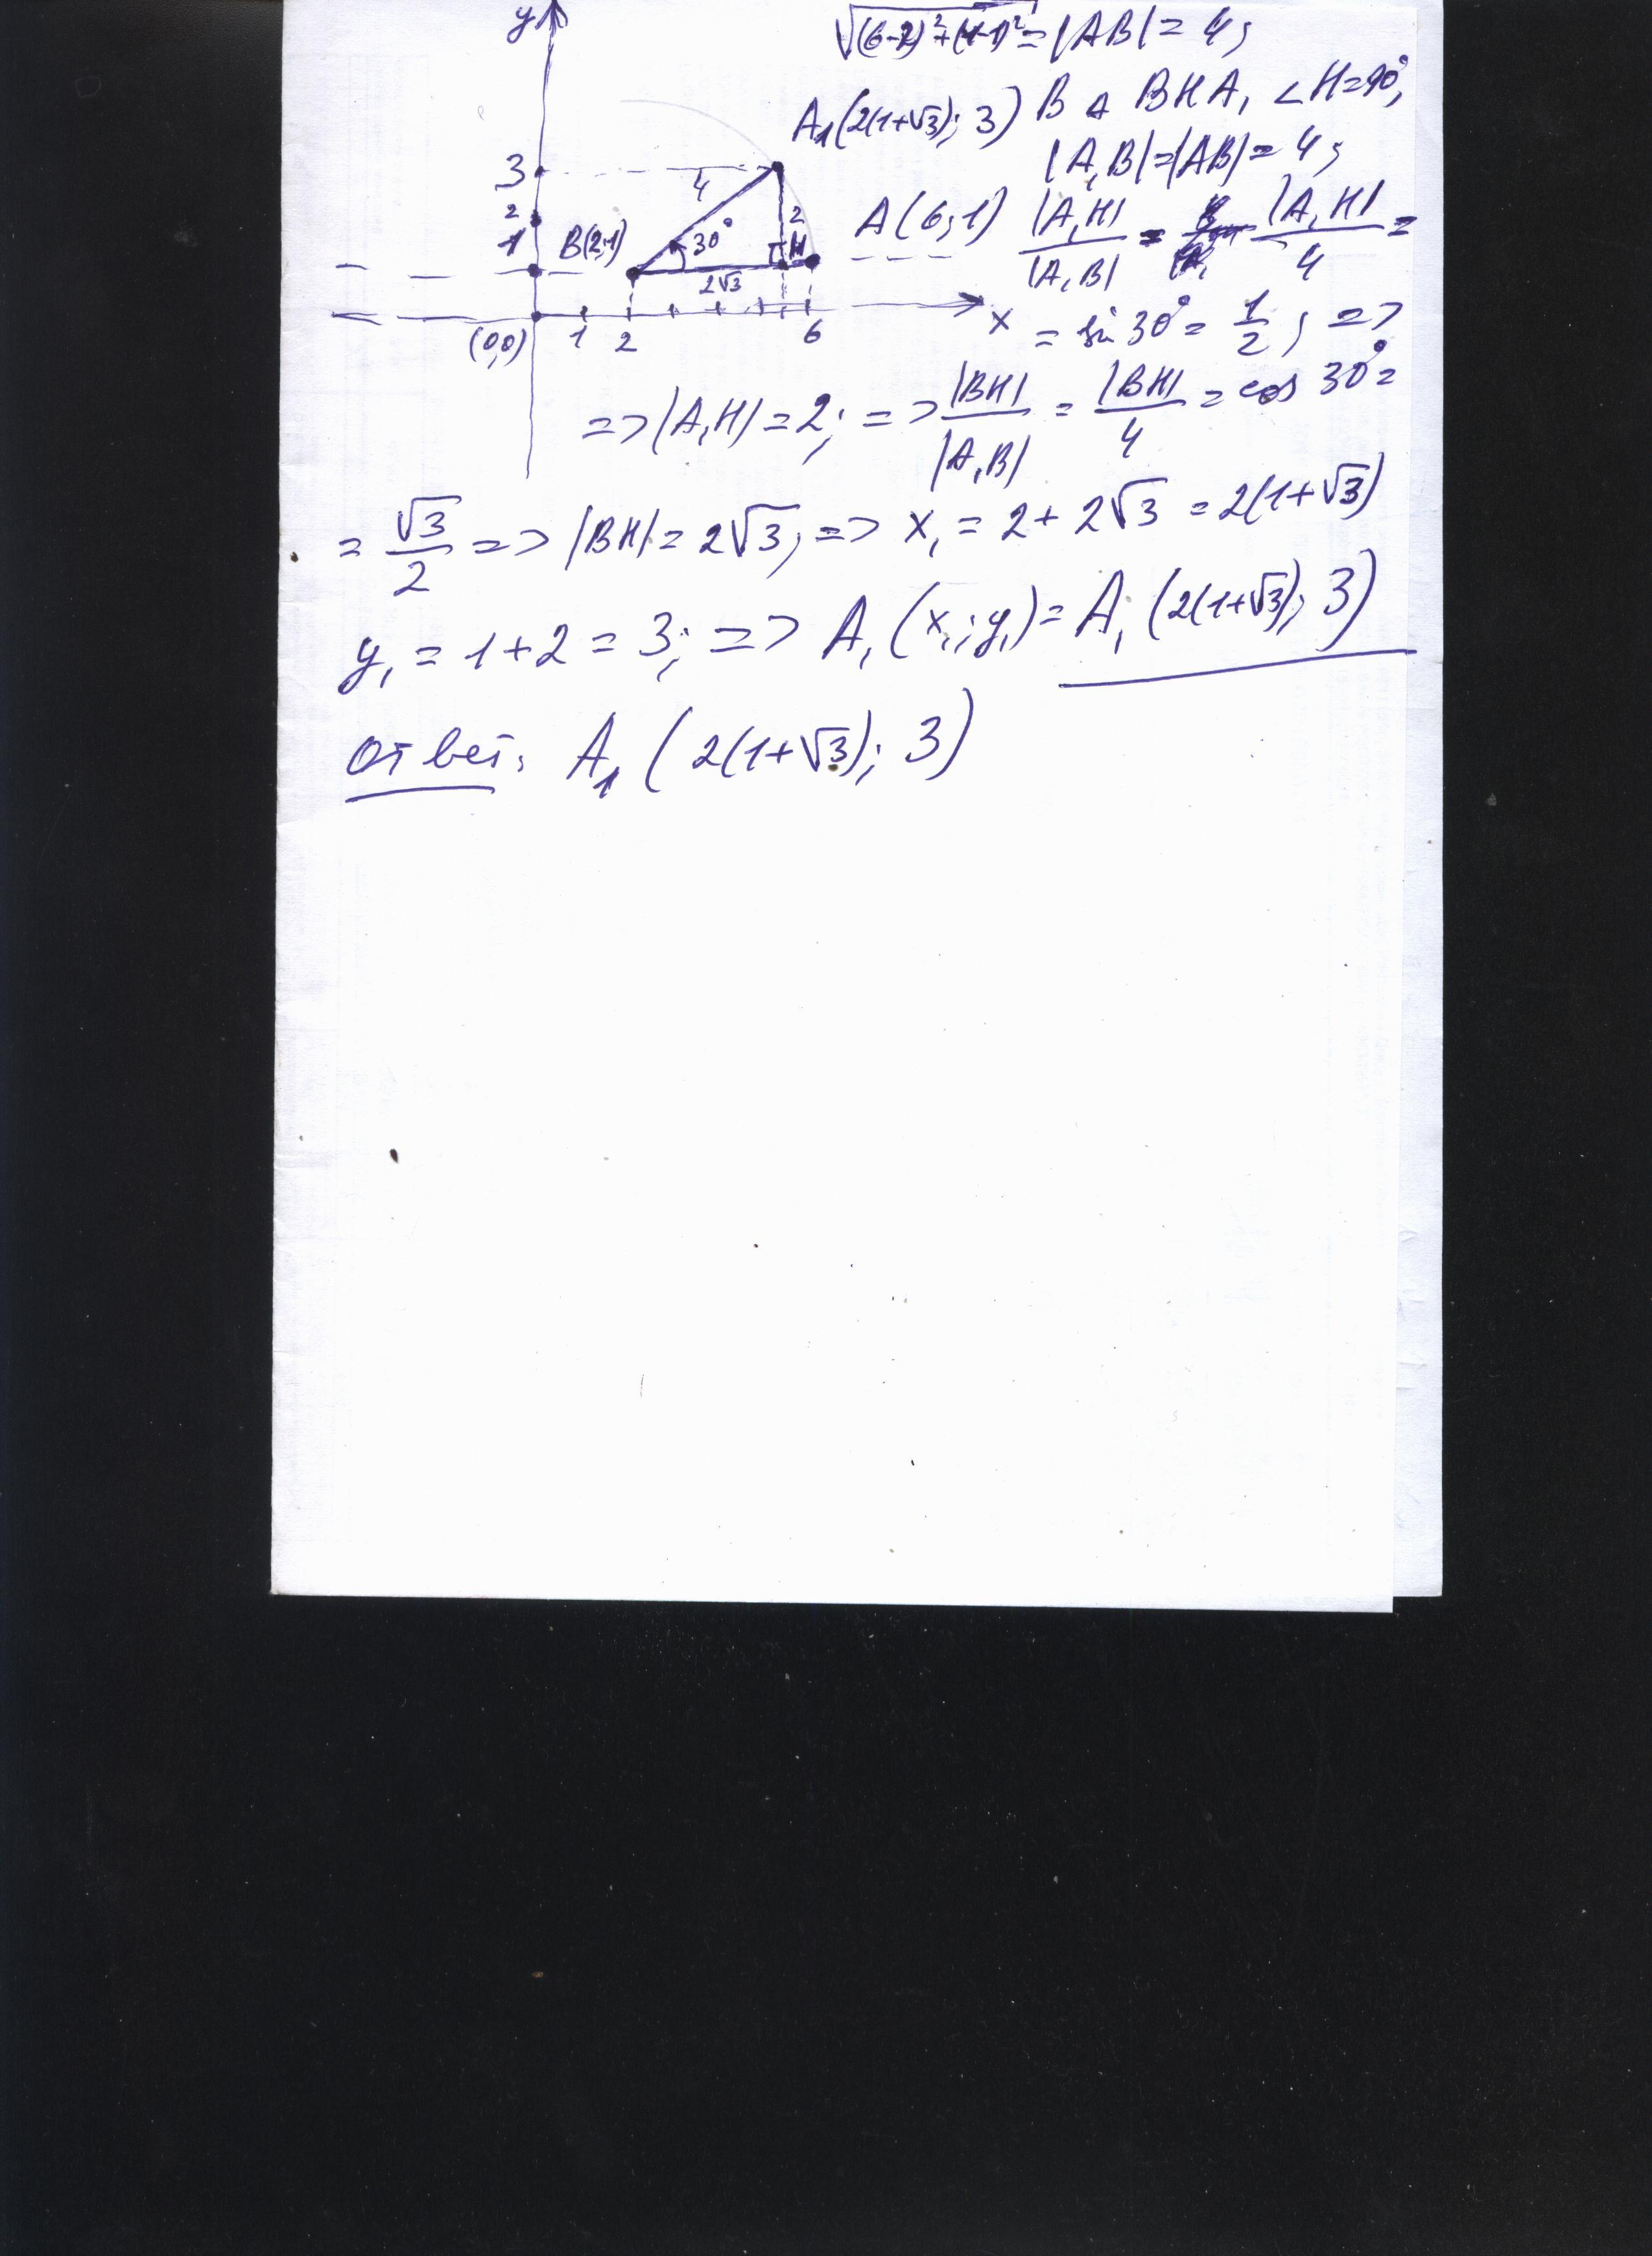 y
√(6-2)²+(1-1)² = |AB| = 4;
A₁(2(1+√3); 3) В △ BHA₁ ∠H=90°,
|A₁B|=|AB|= 4;
3
2
1
B(2;1)
4
30°
2
H
2√3
A(6;1)
|A₁H| / |A₁B| = |A₁H| / 4 =
(0,0) 1 2 6 x
= sin 30° = 1/2; =>
=> |A₁H| = 2; => |BH| / |A₁B| = |BH| / 4 = cos 30° =
= √3/2 => |BH| = 2√3; => x₁ = 2 + 2√3 = 2(1+√3)
y₁ = 1+2 = 3; => A₁(x₁; y₁) = A₁(2(1+√3); 3)
Ответ: A₁(2(1+√3); 3)